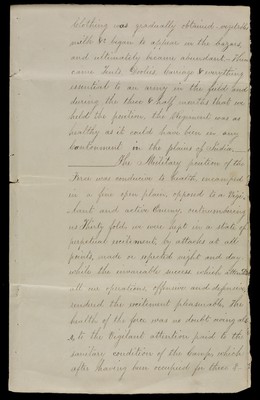 Clothing was gradually obtained, vegetables
milk &c began to appear in the bazars
and ultimately became abundant. Then
came Tents Doolies, Carriage & everything
essential to an army in the field and
during the three & half months that we
held the position, the Regiment was as
healthy as it could have been in any
Cantonment in the plains of India.
The Military position of the
Force was conducive to health, encamped
in a fine open plain, opposed to a Vigi-
lant and active Enemy, outnumbering
us Thirty fold, we were kept in a state of
perpetual excitement, by attacks at all
points, made on repeated night and day.
while the invariable success which attended
all our operations, offensive and defensive
rendered the excitement pleasurable. The
health of the force was no doubt owing al-
so to the Vigilant attention paid to the
sanitary condition of the Camp, which
after having been occupied for three &